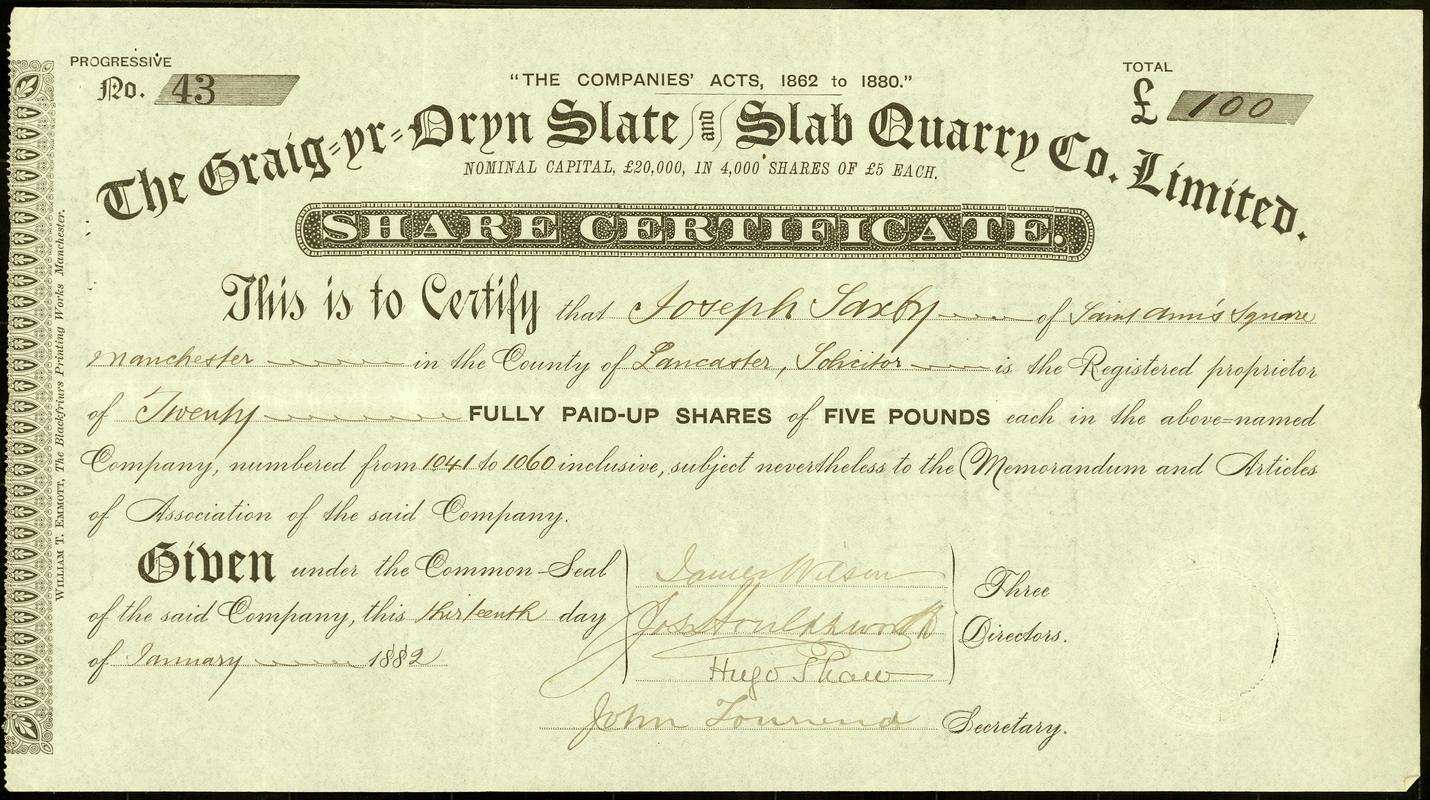 PROGRESSIVE
No. 43
"THE COMPANIES' ACTS, 1862 to 1880."
TOTAL
£ 100
The Graig-yr-Dryn Slate and Slab Quarry Co. Limited.
NOMINAL CAPITAL, £20,000, IN 4,000 SHARES OF £5 EACH.
SHARE CERTIFICATE.
This is to Certify that Joseph Saxby of Saint Ann's Square
Manchester in the County of Lancaster, Solicitor is the Registered proprietor
of Twenty FULLY PAID-UP SHARES of FIVE POUNDS each in the above=named
Company, numbered from 1041 to 1060 inclusive, subject nevertheless to the Memorandum and Articles
of Association of the said Company.
Given under the Common-Seal
of the said Company, this thirteenth day
of January 1882
James Wilson
Jos Houldsworth
Hugo Shaw
Three
Directors.
John Townend Secretary.
WILLIAM T. EMMOTT, The Blackfriars Printing Works Manchester.